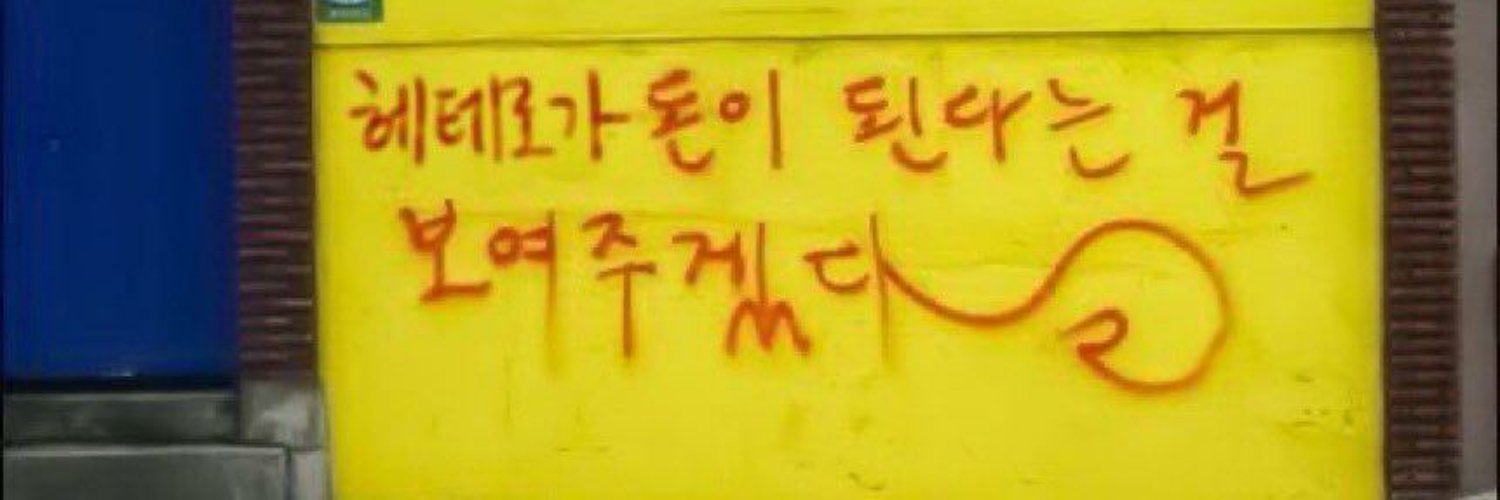 헤테로가 돈이 된다는 걸
보여주겠다